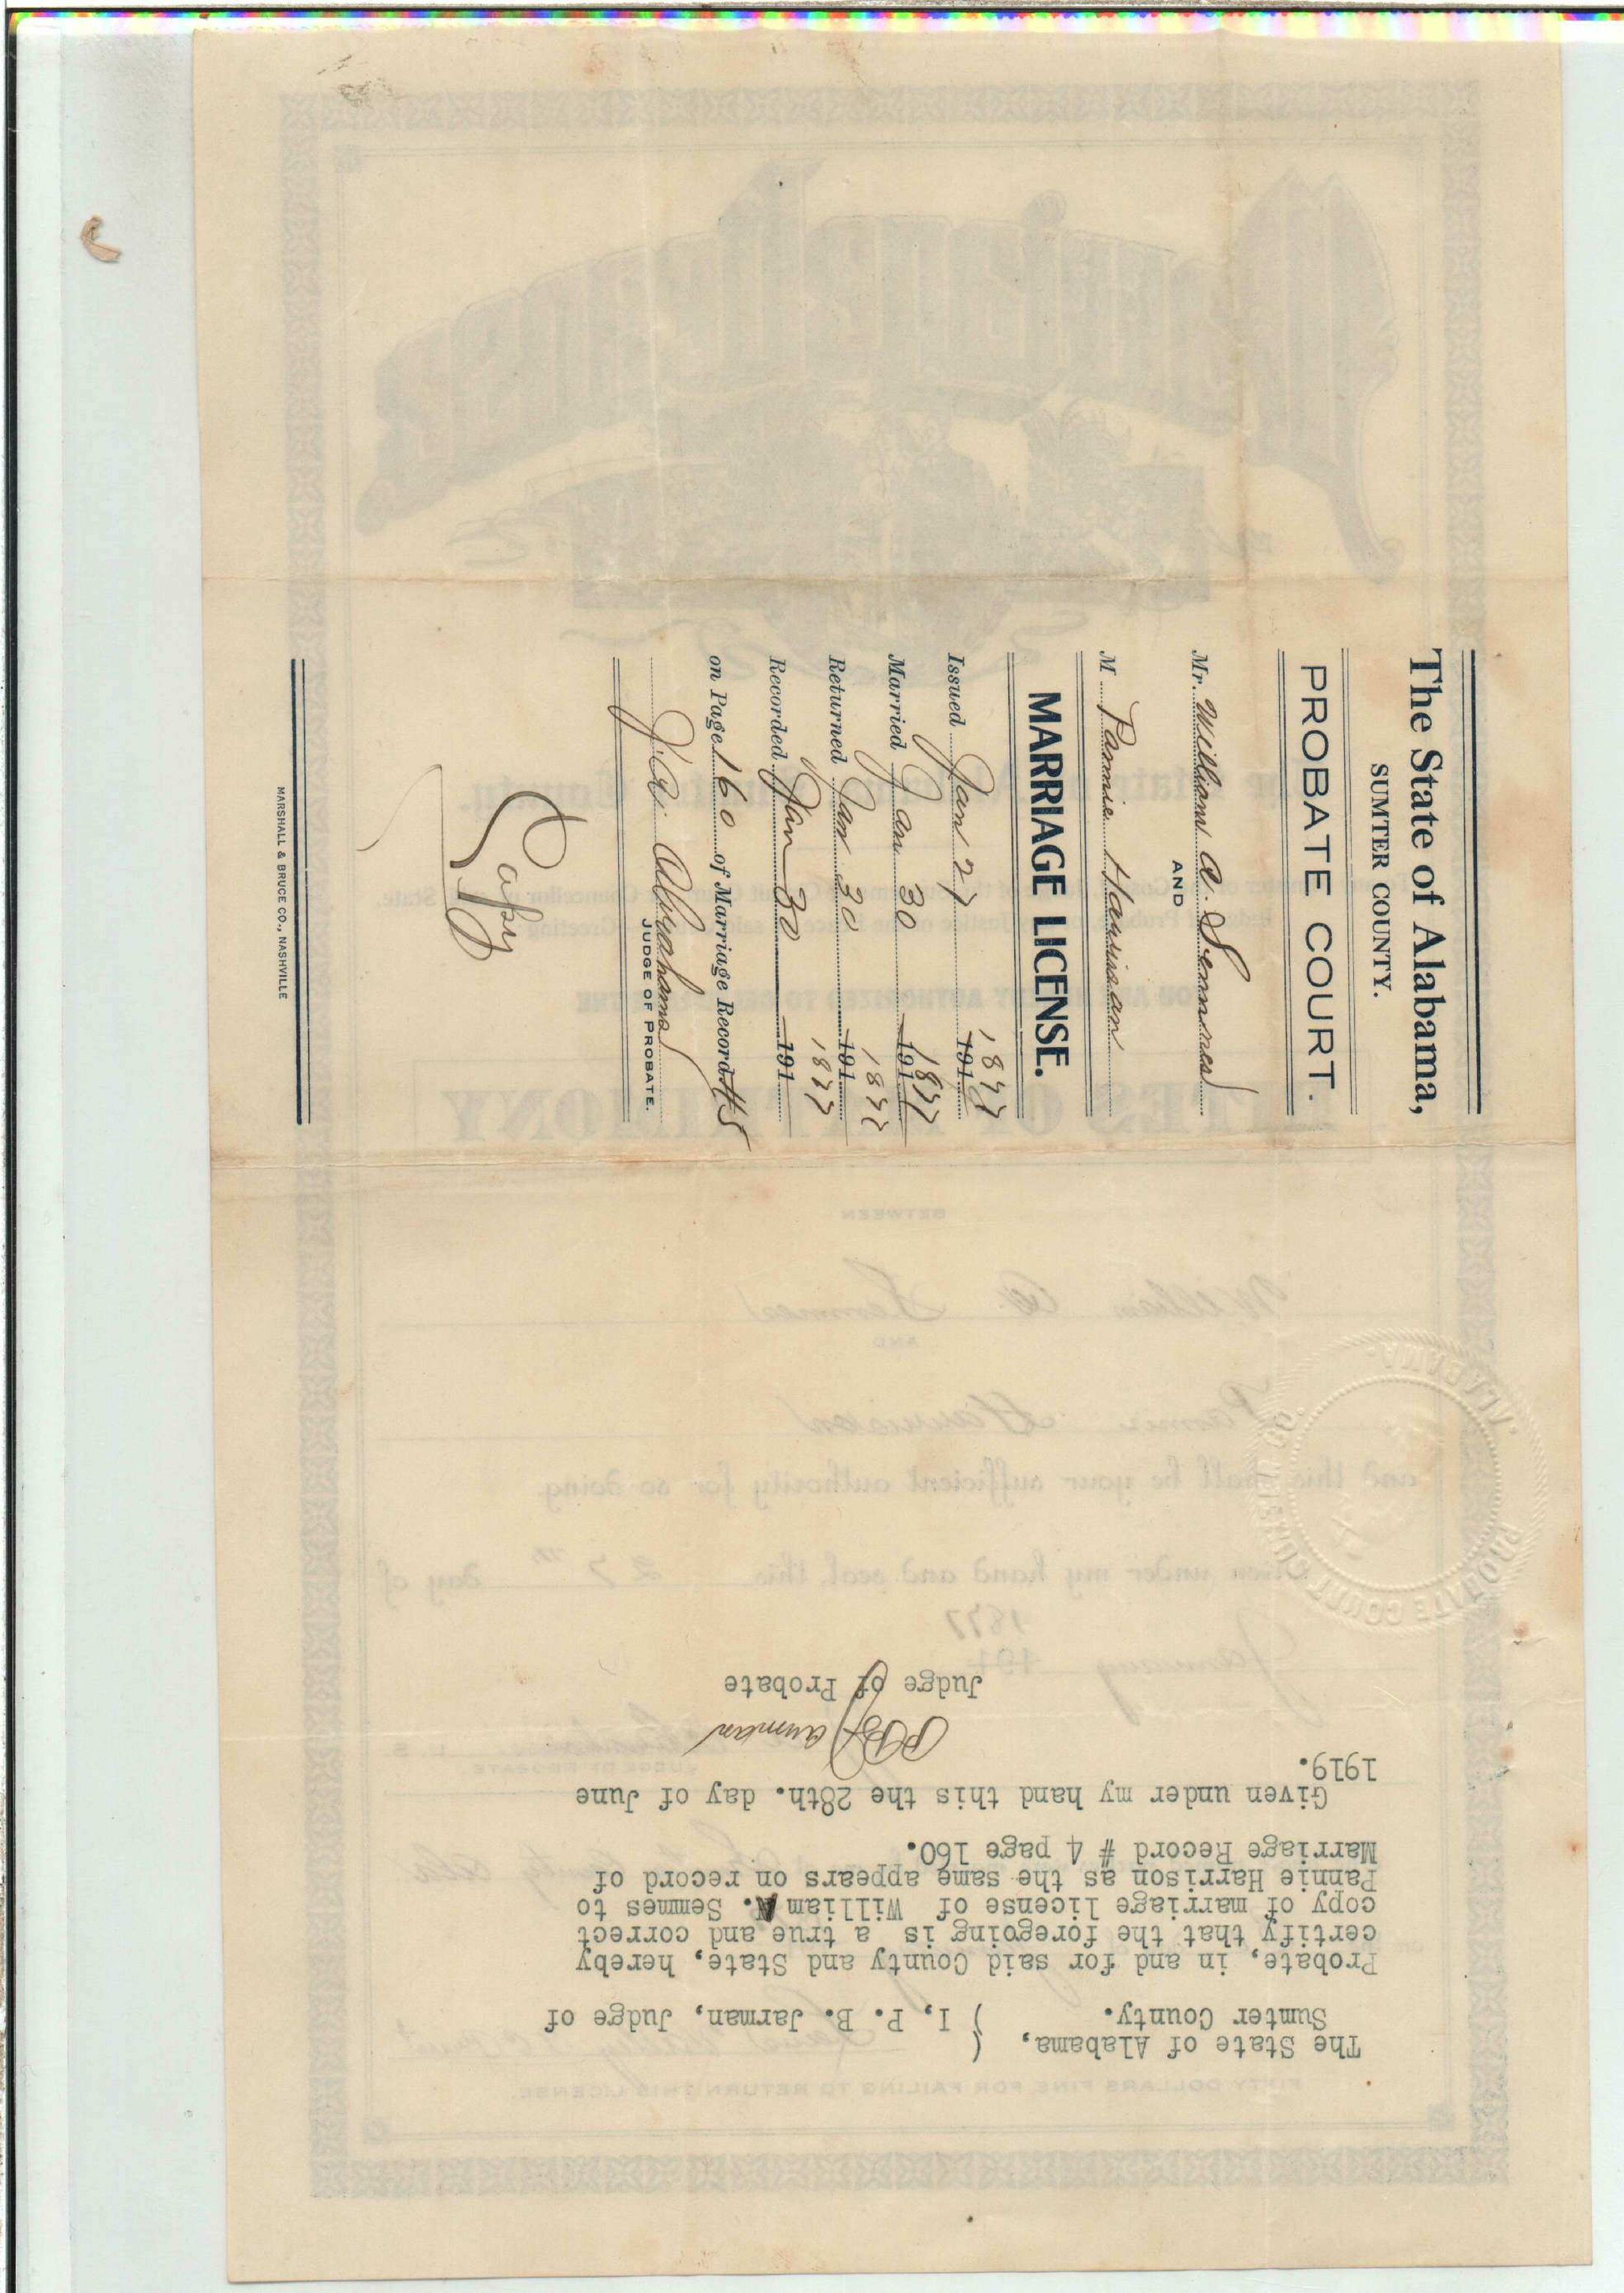 The State of Alabama,
SUMTER COUNTY.
PROBATE COURT.
Mr. William A. Semmes
AND
M Pannie Harrison
MARRIAGE LICENSE.
Issued Jan 27 1877 191
Married Jan 30 1877 191
Returned Jan 30 1877 191
Recorded Jan 30 1877 191
on Page 160 of Marriage Record #5
J. A. Abrahams
JUDGE OF PROBATE.
Copy
MARSHALL & BRUCE CO., NASHVILLE
The State of Alabama, (
Sumter County. ) I, P. B. Jarman, Judge of
Probate, in and for said County and State, hereby
certify that the foregoing is a true and correct
copy of marriage license of William A. Semmes to
Pannie Harrison as the same appears on record of
Marriage Record # 4 page 160.
Given under my hand this the 28th. day of June
1919.
P B Jarman
Judge of Probate
PROBATE COURT SUMTER CO.
ALABAMA.
BETWEEN
William A. Semmes
AND
Pannie Harrison
and this shall be your sufficient authority for so doing
Given under my hand and seal, this 27th day of
January 1877 191
JUDGE OF PROBATE
FIFTY DOLLARS FINE FOR FAILING TO RETURN THIS LICENSE.